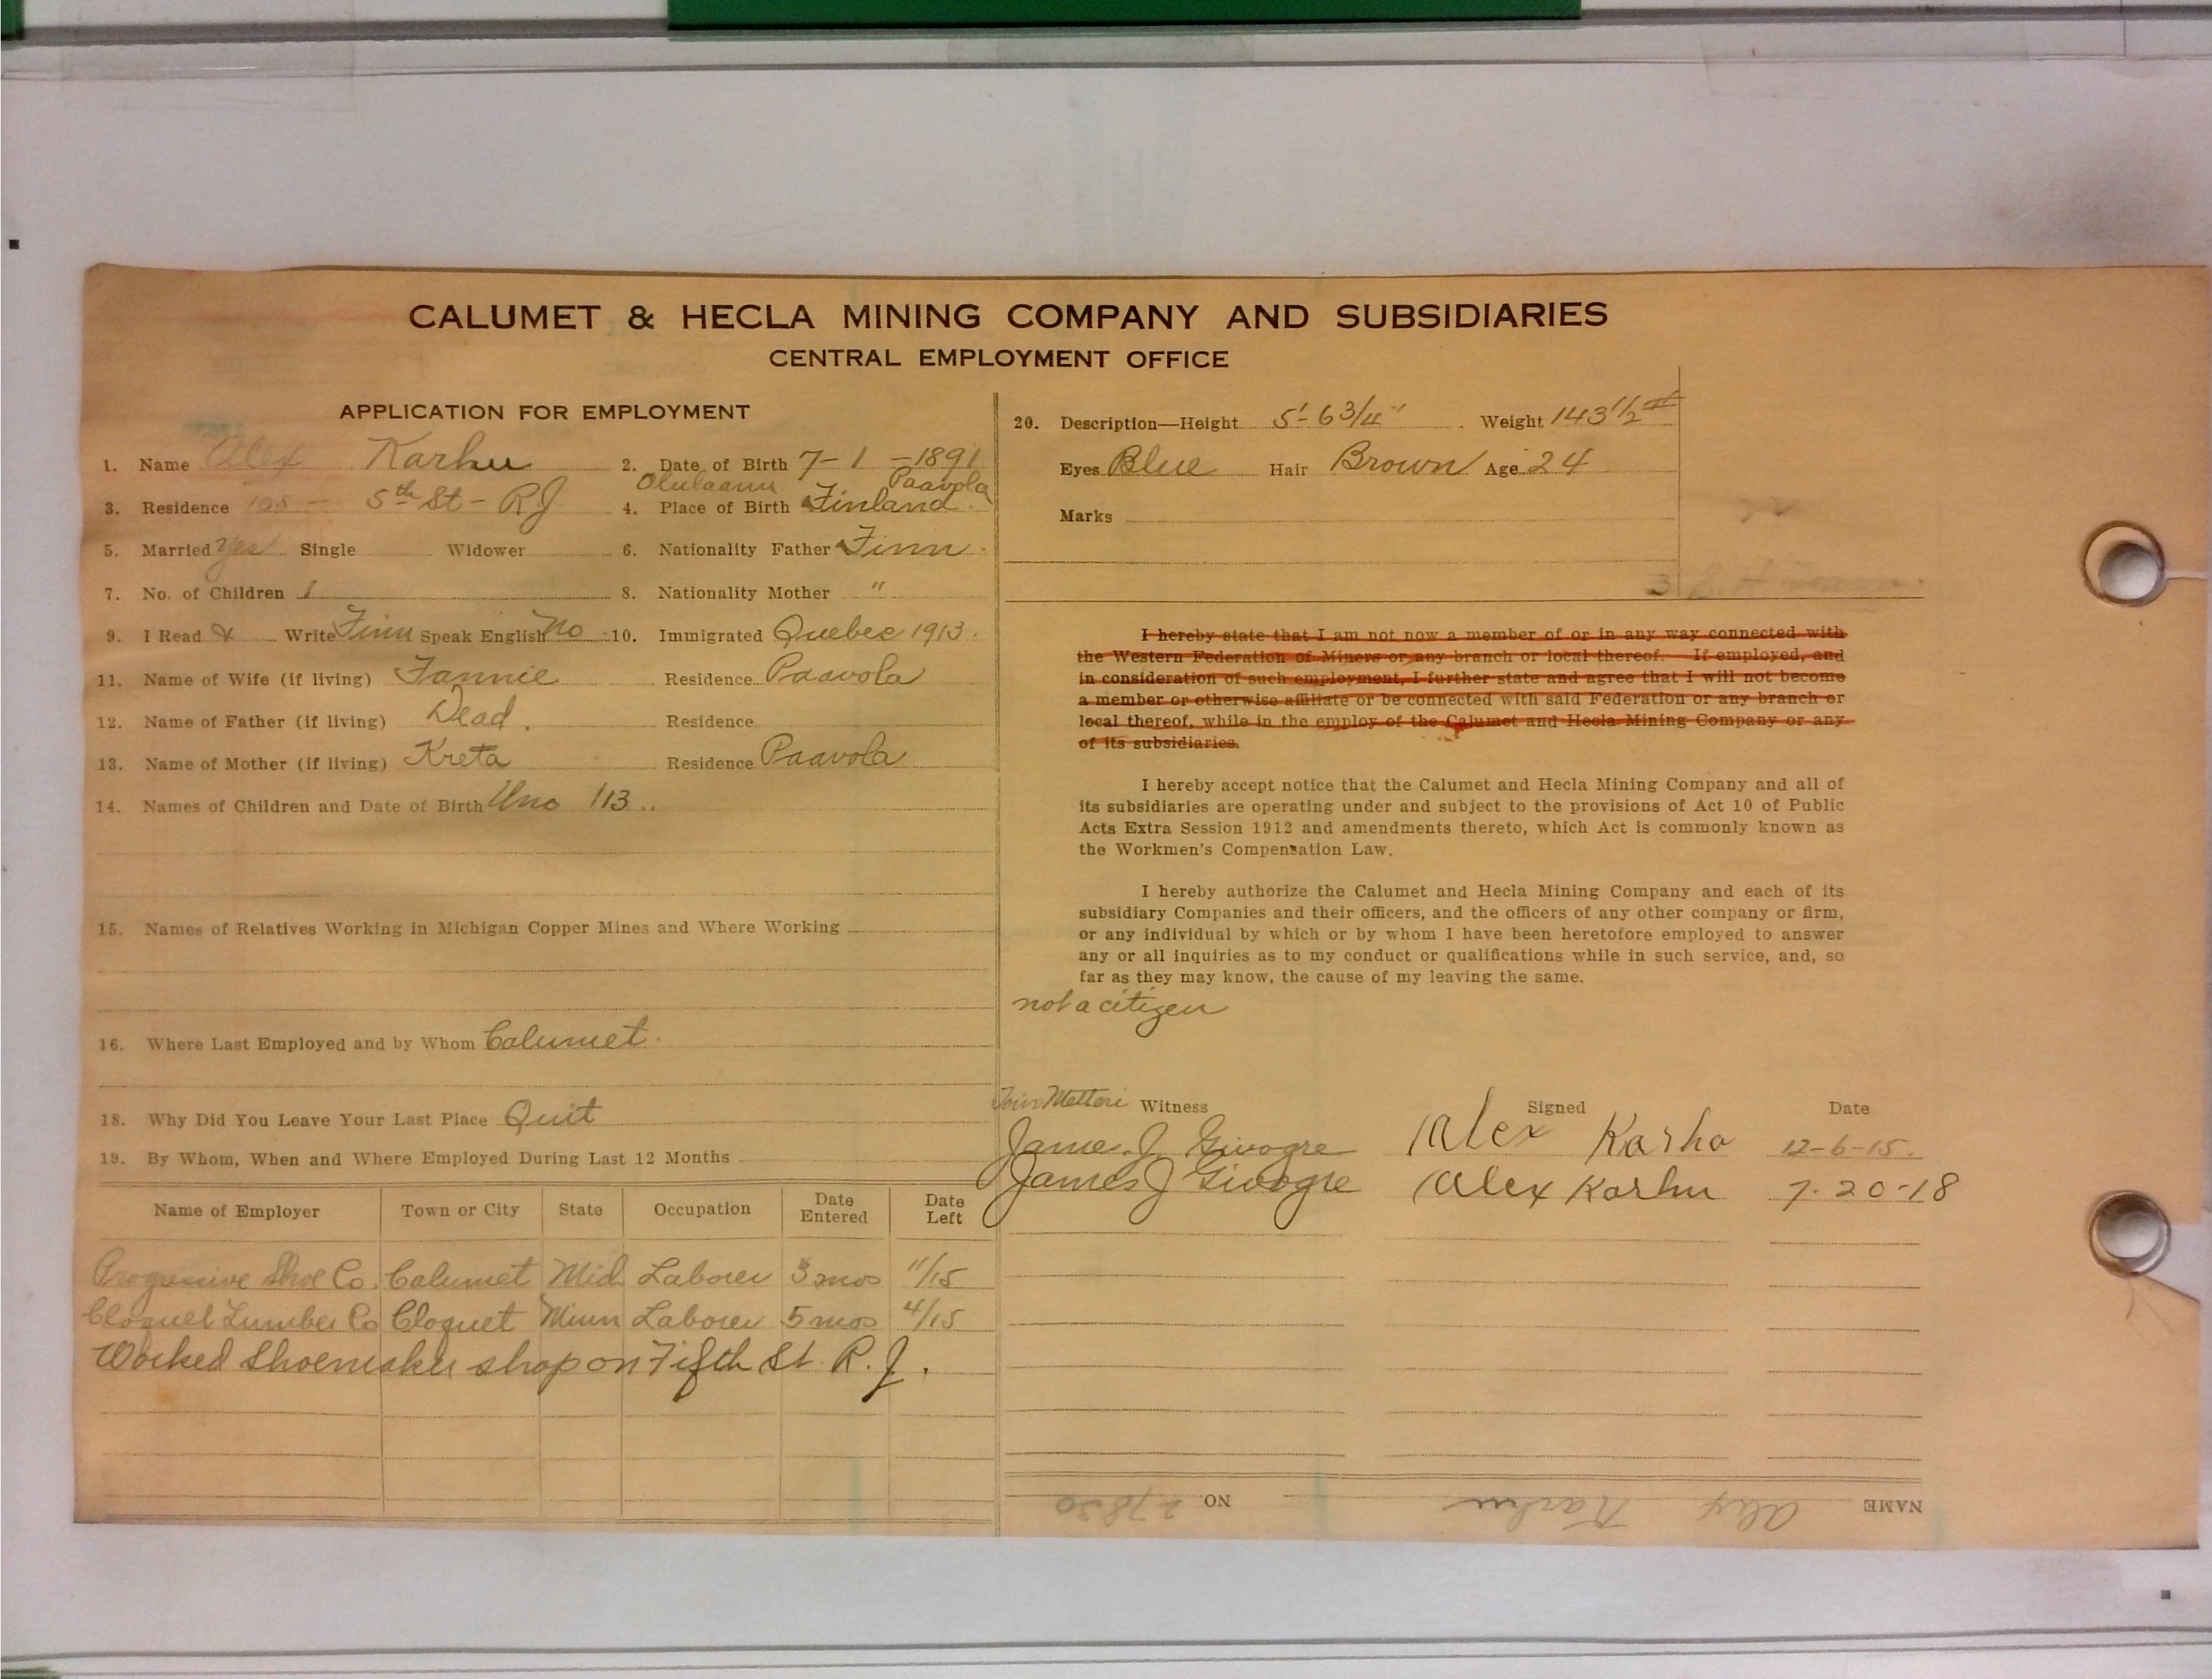 CALUMET & HECLA MINING COMPANY AND SUBSIDIARIES
CENTRAL EMPLOYMENT OFFICE
APPLICATION FOR EMPLOYMENT
1. Name Alex Karhu
2. Date of Birth 7-1-1891
3. Residence 5th St - R.J.
Paavola
4. Place of Birth Finland.
5. Married Yes Single Widower
6. Nationality Father Finn.
7. No. of Children 1
8. Nationality Mother "
9. I Read & Write Finn Speak English No
10. Immigrated Quebec 1913.
11. Name of Wife (if living) Fannie Residence Paavola
12. Name of Father (if living) Dead. Residence
13. Name of Mother (if living) Kreta Residence Paavola
14. Names of Children and Date of Birth Uno 1/13..
15. Names of Relatives Working in Michigan Copper Mines and Where Working
16. Where Last Employed and by Whom Calumet.
18. Why Did You Leave Your Last Place Quit
19. By Whom, When and Where Employed During Last 12 Months
Name of Employer Town or City State Occupation Date Entered Date Left
Progressive Shoe Co. Calumet Mich Laborer 3 mos 11/15
Cloquet Lumber Co Cloquet Minn Laborer 5 mos 4/15
Worked Shoemaker shop on Fifth St. R.J.
20. Description—Height 5'-6 3/4" Weight 143 1/2 #
Eyes Blue Hair Brown Age 24
Marks
3
I hereby state that I am not now a member of or in any way connected with
the Western Federation of Miners or any branch or local thereof. If employed, and
in consideration of such employment, I further state and agree that I will not become
a member or otherwise affiliate or be connected with said Federation or any branch or
local thereof, while in the employ of the Calumet and Hecla Mining Company or any
of its subsidiaries.
I hereby accept notice that the Calumet and Hecla Mining Company and all of
its subsidiaries are operating under and subject to the provisions of Act 10 of Public
Acts Extra Session 1912 and amendments thereto, which Act is commonly known as
the Workmen's Compensation Law.
I hereby authorize the Calumet and Hecla Mining Company and each of its
subsidiary Companies and their officers, and the officers of any other company or firm,
or any individual by which or by whom I have been heretofore employed to answer
any or all inquiries as to my conduct or qualifications while in such service, and, so
far as they may know, the cause of my leaving the same.
not a citizen
Witness Signed Date
James J. Givogre Alex Karho 12-6-15.
James J Givogre Alex Karhu 7-20-18
NAME Alex Karhu NO. 27830